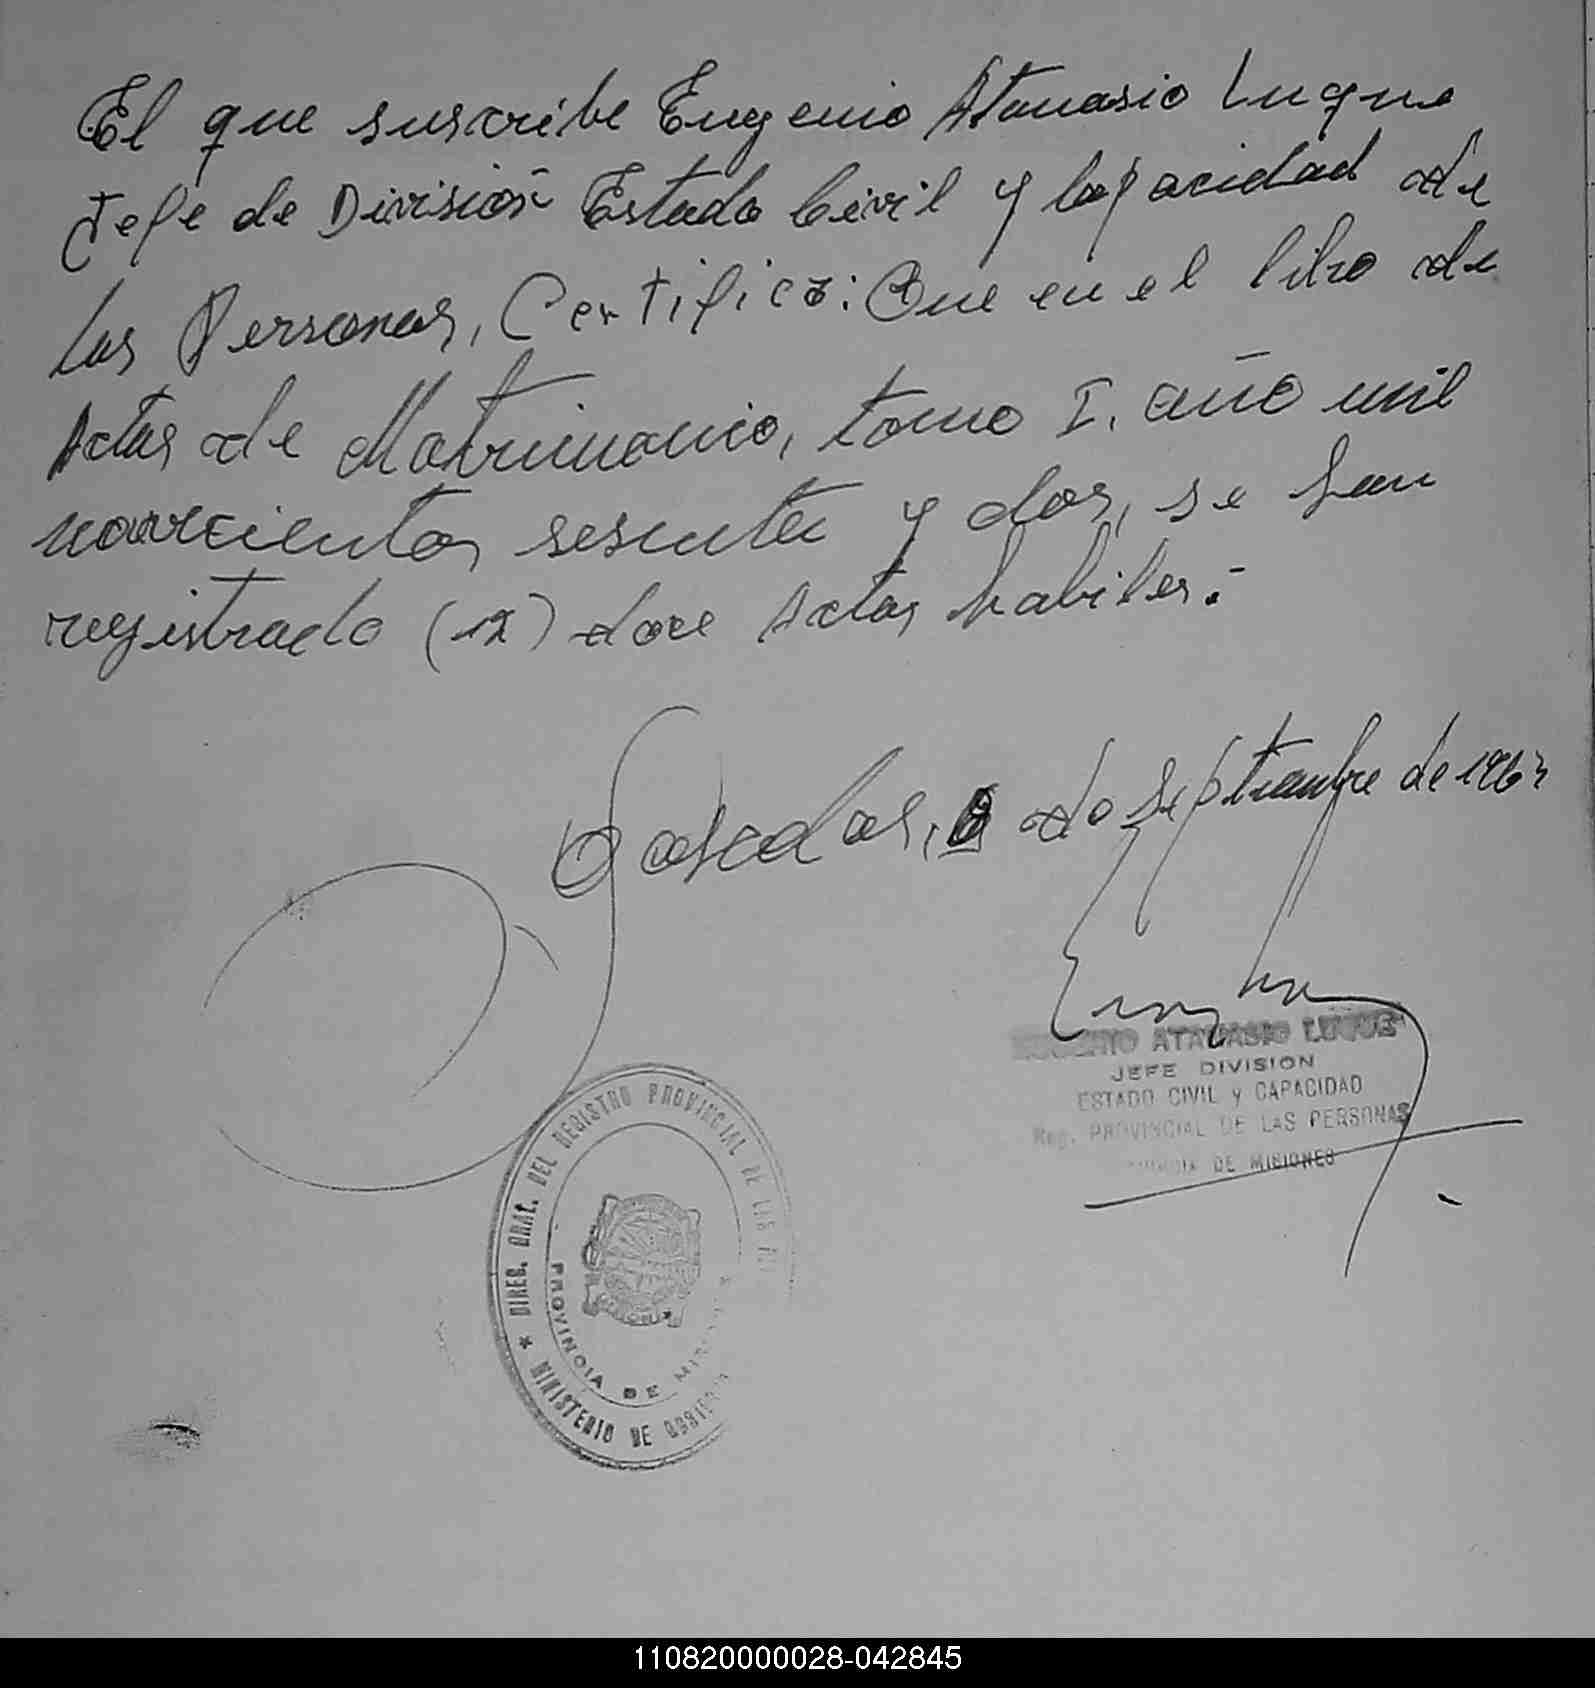 El que suscribe Eugenio Atanasio Luque
Jefe de División Estado Civil y Capacidad de
las Personas, Certifica: Que en el libro de
Actas de Matrimonio, tomo I. año mil
novecientos sesenta y dos, se han
registrado (12) doce Actas habiles.-
Posadas, 8 de Septiembre de 196
EUGENIO ATANASIO LUQUE
JEFE DIVISION
ESTADO CIVIL y CAPACIDAD
Reg. PROVINCIAL DE LAS PERSONAS
DE MISIONES
* DIREC. GRAL. DEL REGISTRO PROVINCIAL DE LAS
PROVINCIA DE MISIONES
MINISTERIO DE GOBIERNO
110820000028-042845